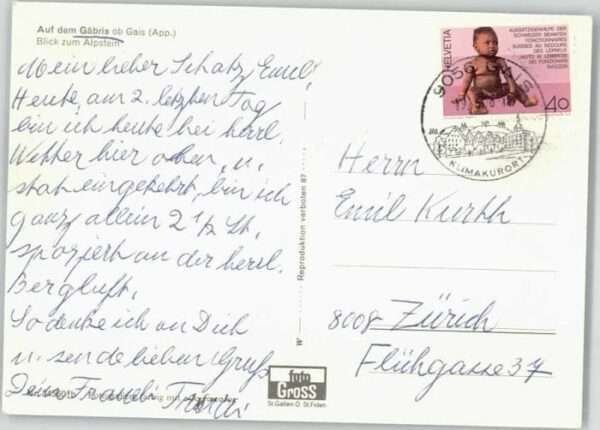 Auf dem Gäbris ob Gais (App.)
Blick zum Alpstein
Mein lieber Schatz, Emil!
Heute, am 2. letzten Tag
bin ich heute bei herrl.
Wetter hier oben, u.
statt eingekehrt, bin ich
ganz allein 2 1/2 St.
spaziert an der herrl.
Bergluft.
So denke ich an Dich
u. sende lieben Gruss
Dein Fraueli Trudi
Reproduktion verboten 87
W
foto
Gross
St.Gallen O. St.Fiden
HELVETIA
AUSSÄTZIGENHILFE DER
SCHWEIZER BEAMTEN
40
9056 GAIS
KLIMAKURORT
Herrn
Emil Kurth
8008 Zürich
Flühgasse 37